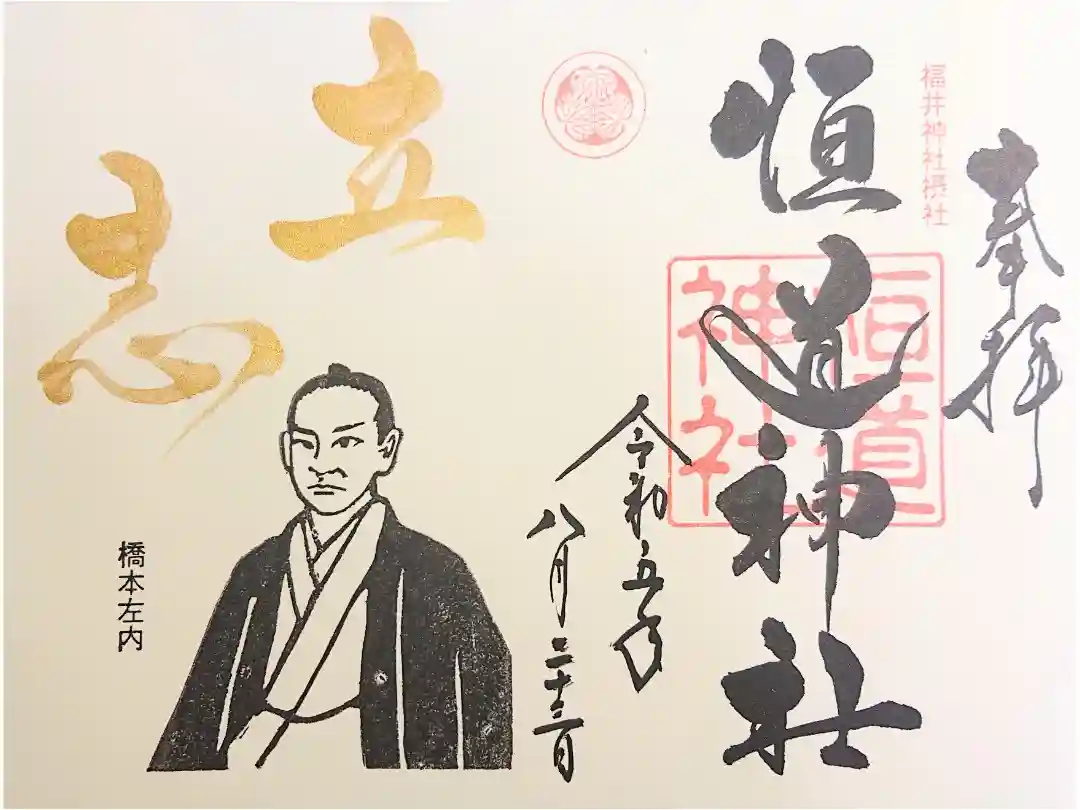 奉拝
福井神社摂社
恒道神社
恒道
神社
令和五年
八月二十三日
立志
橋本左内